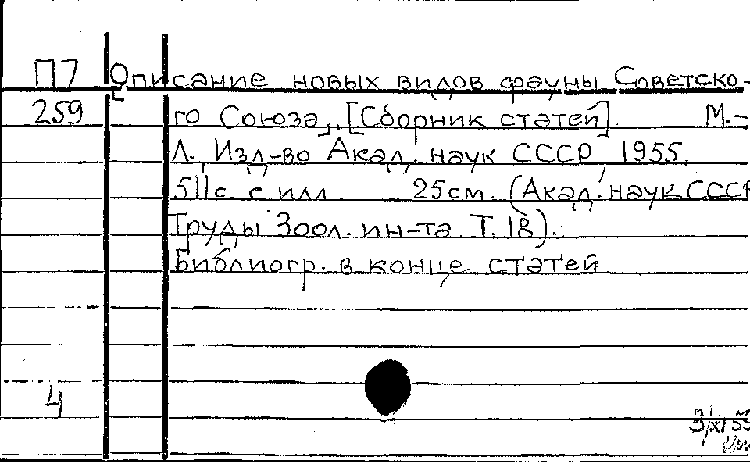 П7 Описание новых видов фауны Советско-
259 го Союза. [Сборник статей]. М.-
Л., Изд-во Акад. наук СССР, 1955.
511 с. с илл. 25 см. (Акад. наук СССР
Труды Зоол. ин-та. Т. 18).
Библиогр. в конце статей
4